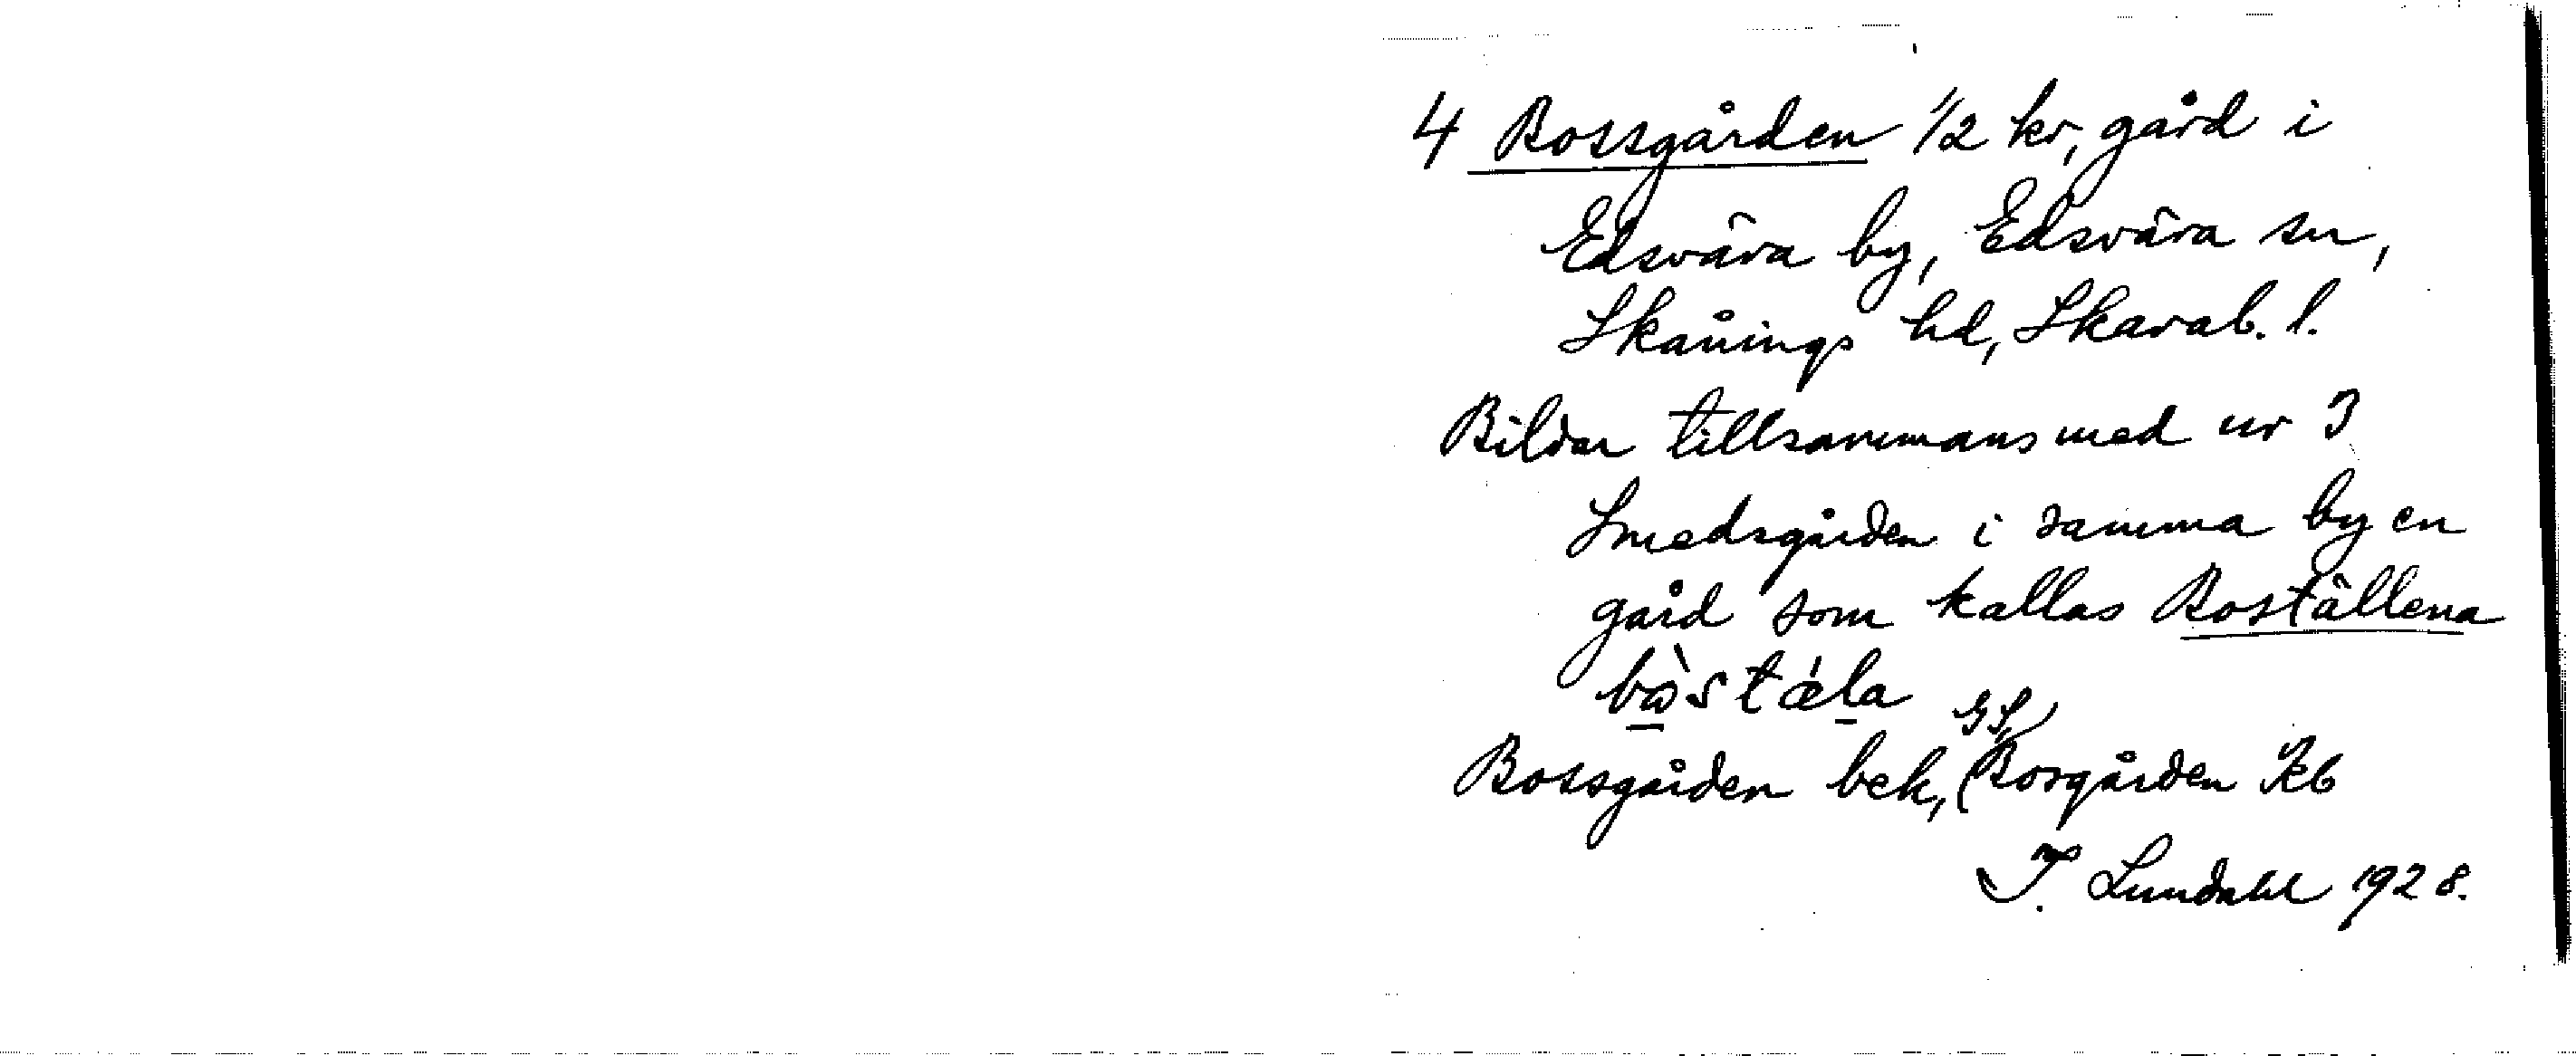 4 Bossgården 1/2 kr, gård i
Edsvära by, Edsvära sn,
Skånings hd, Skarab. l.
Bildar tillsammans med nr 3
Smedsgården i samma by en
gård som kallas Boställena
GS,
Bossgården bek, (Bosgården Kb
I. Lundahl 1928.